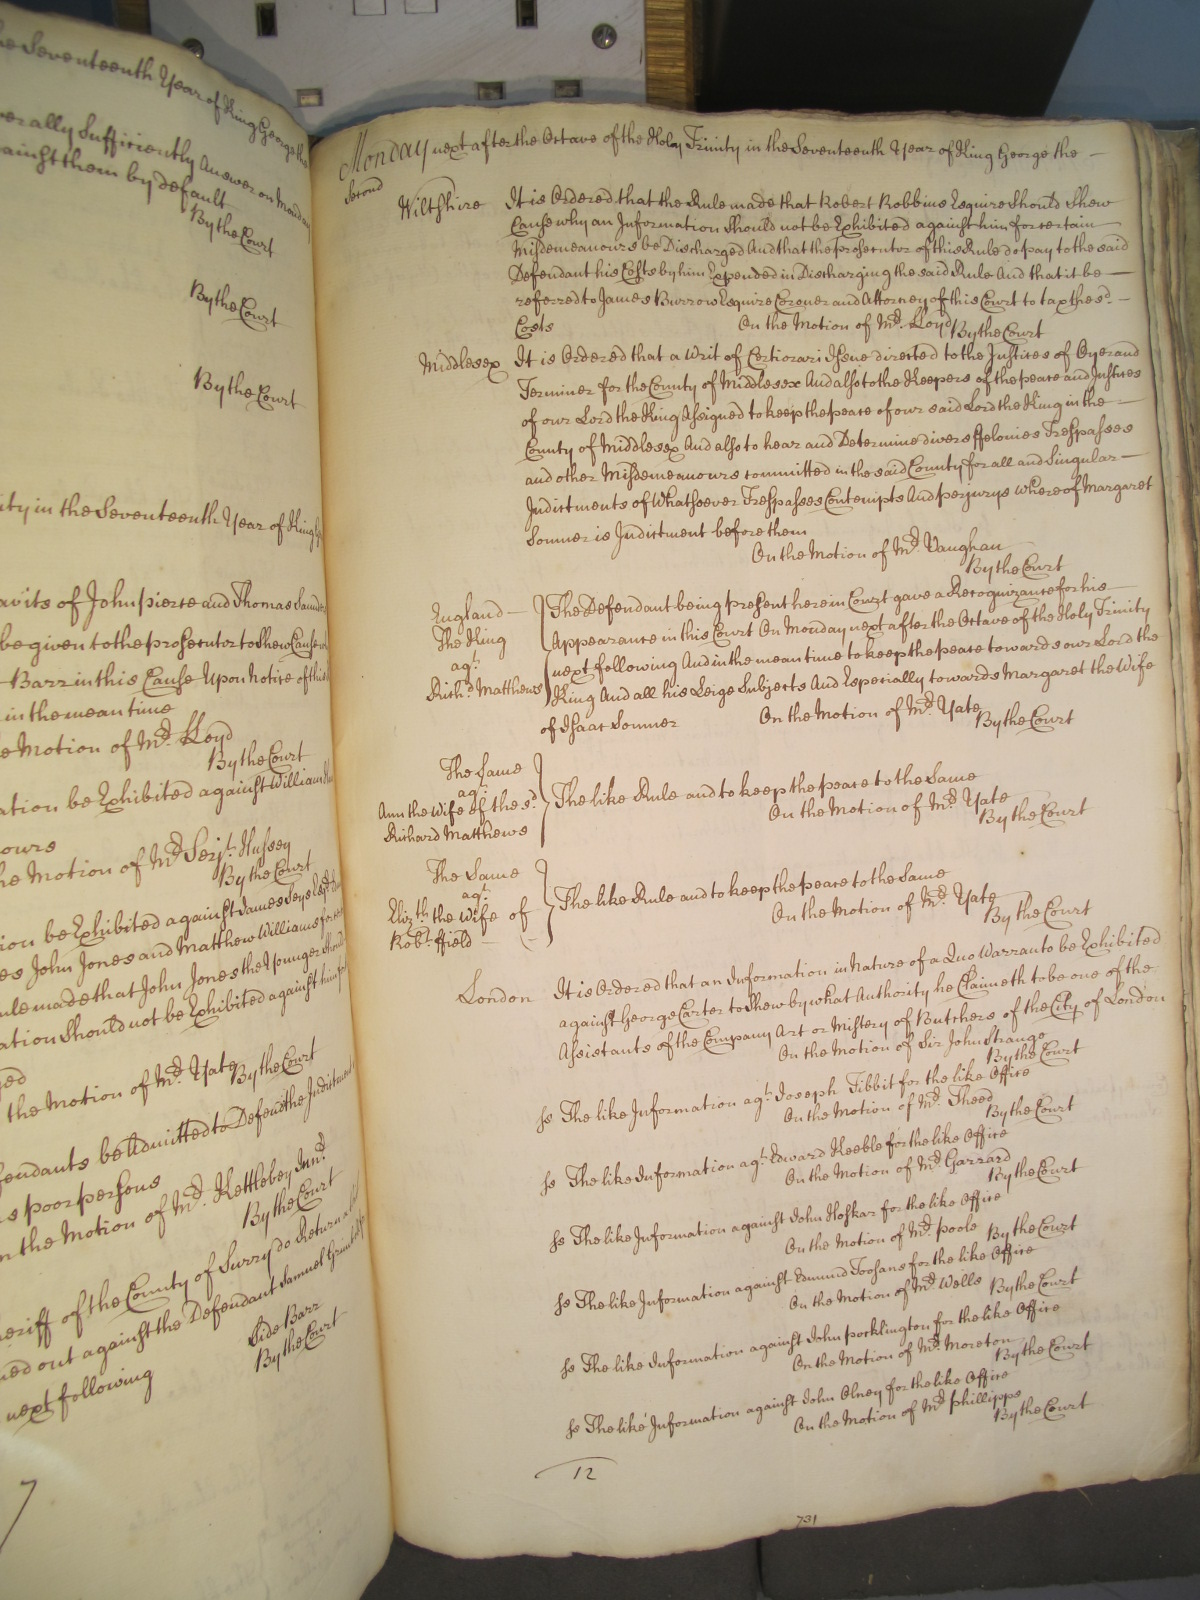 he Seventeenth Year of King George the
erally Sufficiently Answer on Monday
against them by default
By the Court
By the Court
By the Court
ity in the Seventeenth Year of King
avits of John pierce and Thomas
be given to the prosecutor to shew Cause
Barr in this Cause Upon notice of this
in the mean time
e Motion of Mr. Lloyd
By the Court
ation be Exhibited against William
ours
he Motion of Mr Serjt. Hussey
By the Court
ion be Exhibited against James Seys
es John Jones and Matthew Williams
ule made that John Jones the Younger
ation Should not be Exhibited against him
the Motion of Mr. Yate
By the Court
fendants be Admitted to Defend the Indictment
s poor persons
n the Motion of Mr. Kettlebey Junr.
By the Court
heriff of the County of Surry do Return a
ued out against the Defendant Samuel
next following
Side Barr
By the Court
7
Monday next after the Octave of the Holy Trinity in the Seventeenth Year of King George the
Second
Wiltshire It is Ordered that the Rule made that Robert Robbins Esquire Should Shew
Cause why an Information Should not be Exhibited against him for certain
Misdemeanours be Discharged And that the prosecutor of this Rule do pay to the said
Defendant his Costs by him Expended in Discharging the said Rule And that it be
referred to James Burrow Esquire Coroner and Attorney of this Court to tax the sd.
Costs On the Motion of Mr. Lloyd By the Court
Middlesex It is Ordered that a Writ of Certiorari Issue directed to the Justices of Oyer and
Terminer for the County of Middlesex And also to the Keepers of the peace and Justices
of our Lord the King Assigned to keep the peace of our said Lord the King in the
County of Middlesex And also to hear and Determine divers ffelonies Trespasses
and other Misdemeanours committed in the said County for all and Singular
Indictments of Whatsoever Trespasses Contempts And perjurys whereof Margaret
Somner is Indictment before them
On the Motion of Mr. Vaughan
By the Court
England
The King
agt.
Richd. Matthews
The Defendant being present here in Court gave a Recognizance for his
Appearance in this Court On Monday next after the Octave of the Holy Trinity
next following And in the mean time to keep the peace towards our Lord the
King And all his Leige Subjects And Especially towards Margaret the Wife
of Isaac Somner On the Motion of Mr. Yate
By the Court
The Same
agt.
Ann the Wife of the sd.
Richard Matthews
The like Rule and to keep the peace to the Same
On the Motion of Mr. Yate
By the Court
The Same
agt.
Elizth. the Wife of
Robt. ffield
The like Rule and to keep the peace to the Same
On the Motion of Mr. Yate
By the Court
London It is Ordered that an Information in Nature of a Quo Warranto be Exhibited
against George Carter to Shew by what Authority he Claimeth to be one of the
Assistants of the Company Art or Mistery of Butchers of the City of London
On the Motion of Sir John Strange
By the Court
ss The like Information agt. Joseph Tibbit for the like Office
On the Motion of Mr. Theed
By the Court
ss The like Information agt. Edward Keeble for the like Office
On the Motion of Mr Garrard
By the Court
ss The like Information against John Hoskar for the like Office
On the Motion of Mr. poole By the Court
ss The like Information against Edmund for the like Office
On the Motion of Mr Wells By the Court
ss The like Information against John pocklington for the like Office
On the Motion of Mr. Moreton
By the Court
ss The like Information against John Olney for the like Office
On the Motion of Mr phillipps
By the Court
12
731